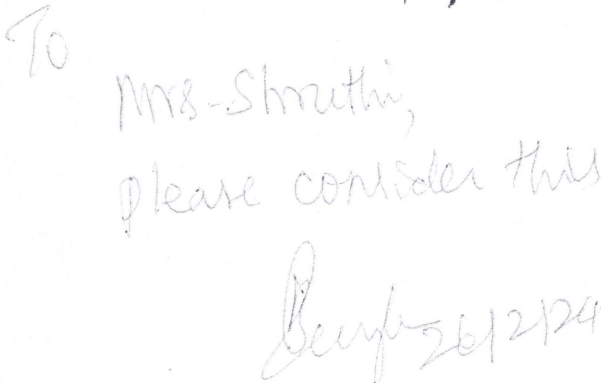 To
Mrs-Shruthi,
please consider this
26/2/24